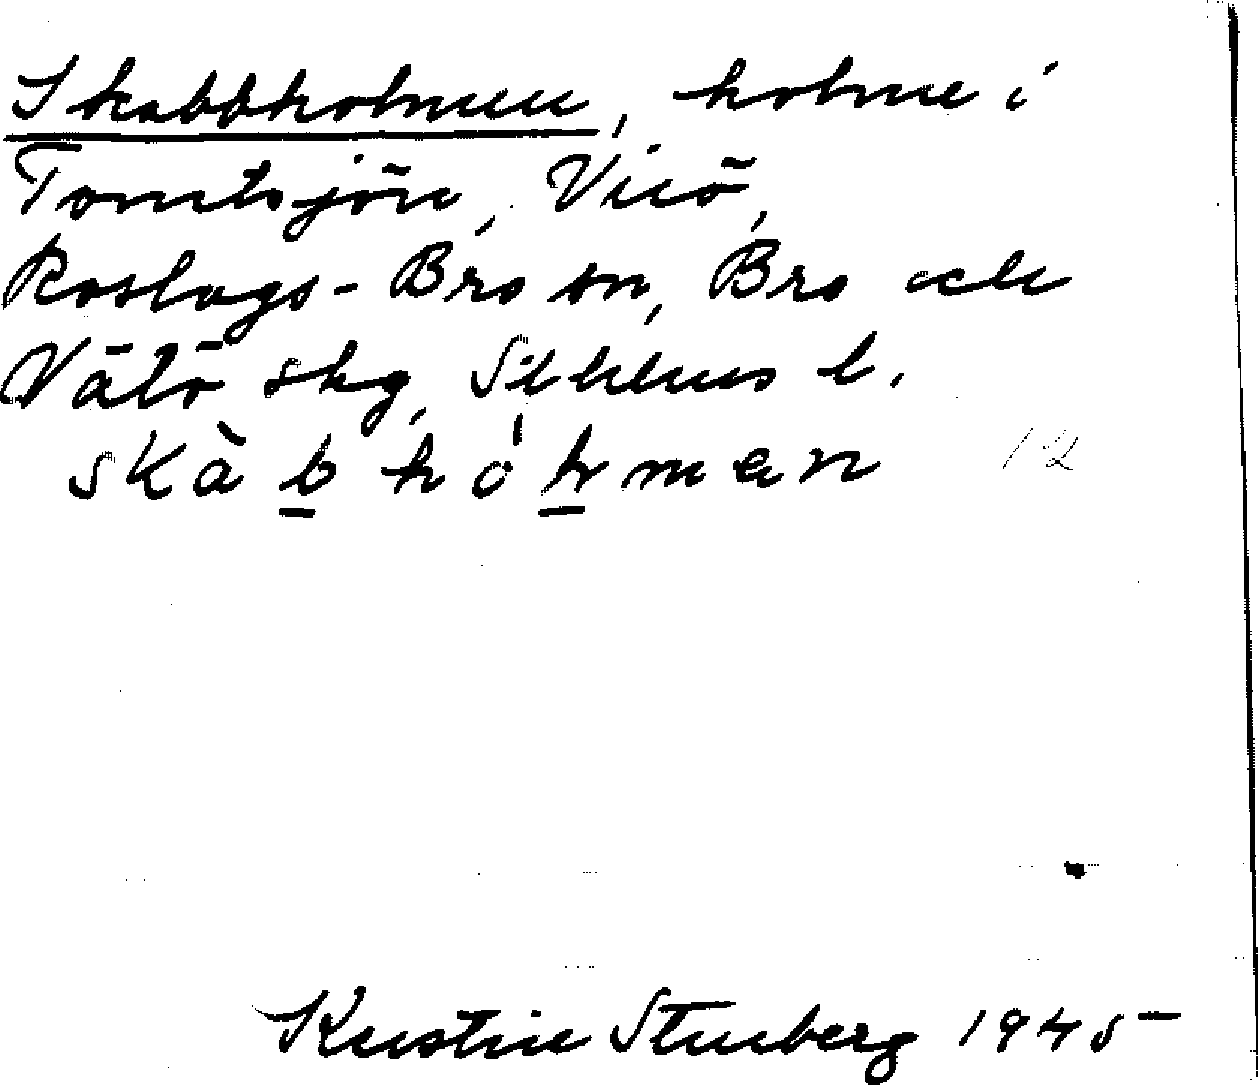 Skabbholmen, holme i
Tomtsjön, Visö,
Roslags-Bro sn, Bro och
Vätö skg, Sthlms l.
skàbhólmen 12
Kerstin Stenberg 1945